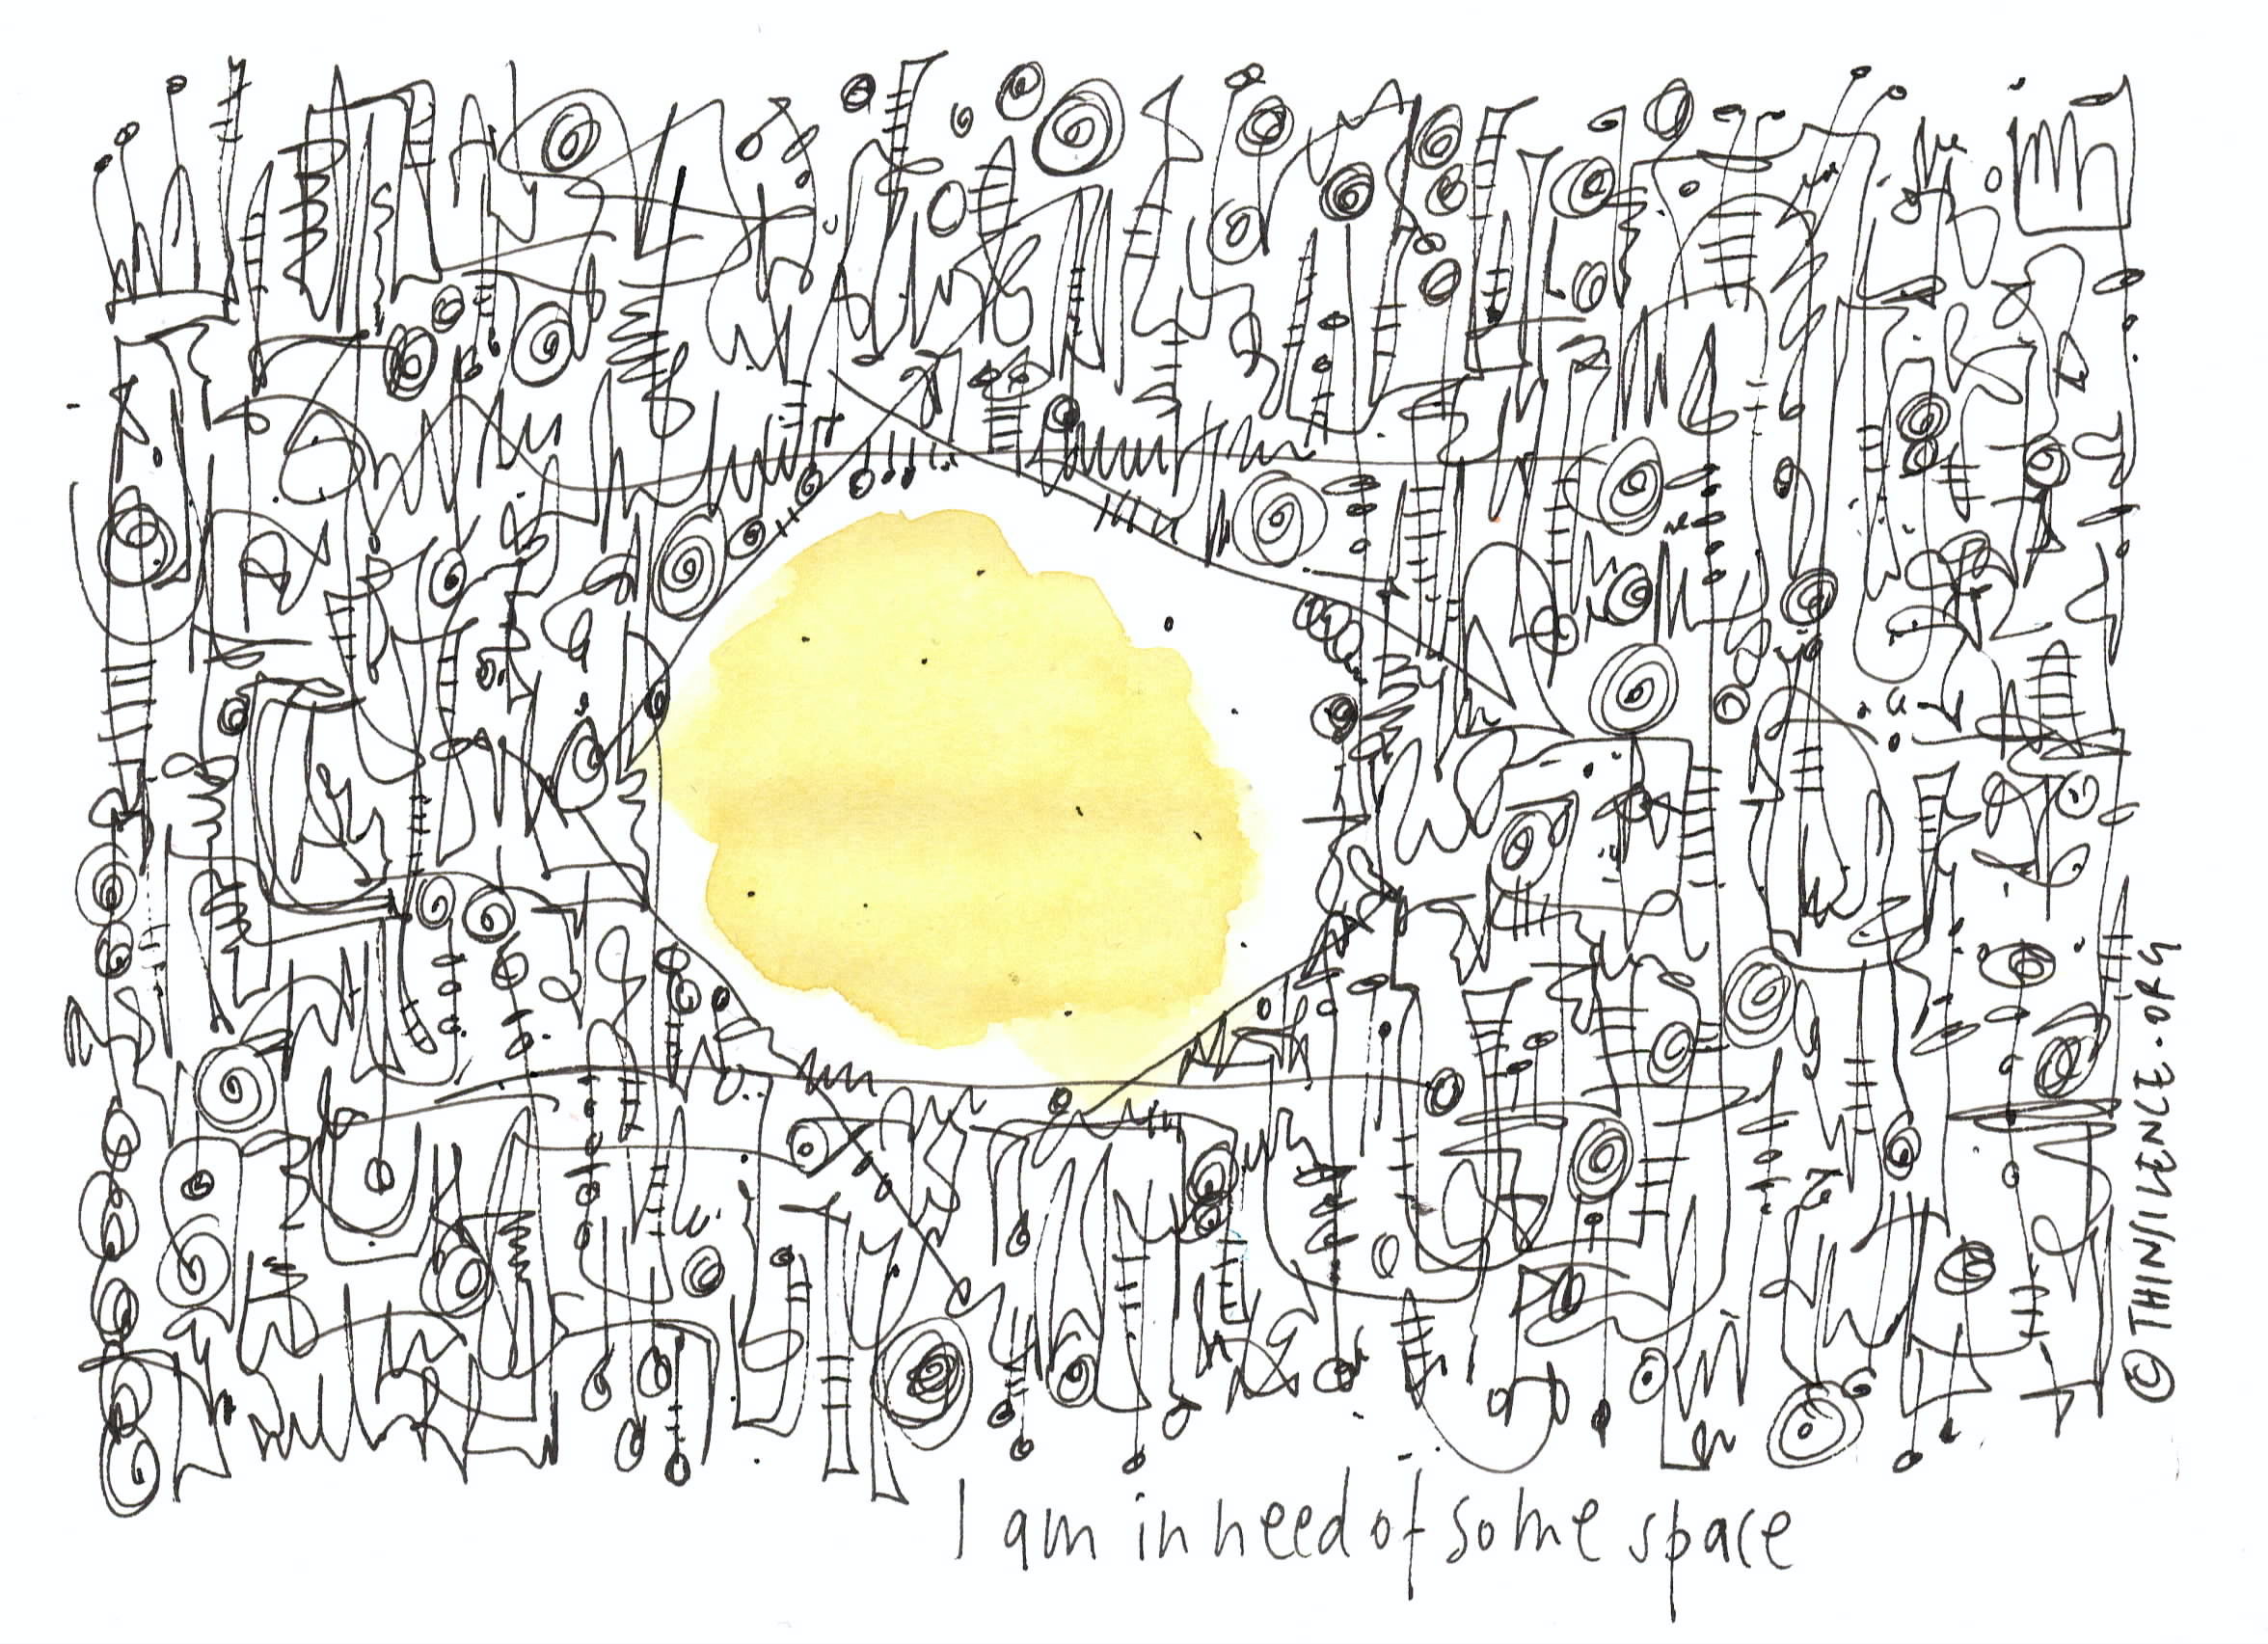 I am in need of some space
© THINSILENCE.ORG